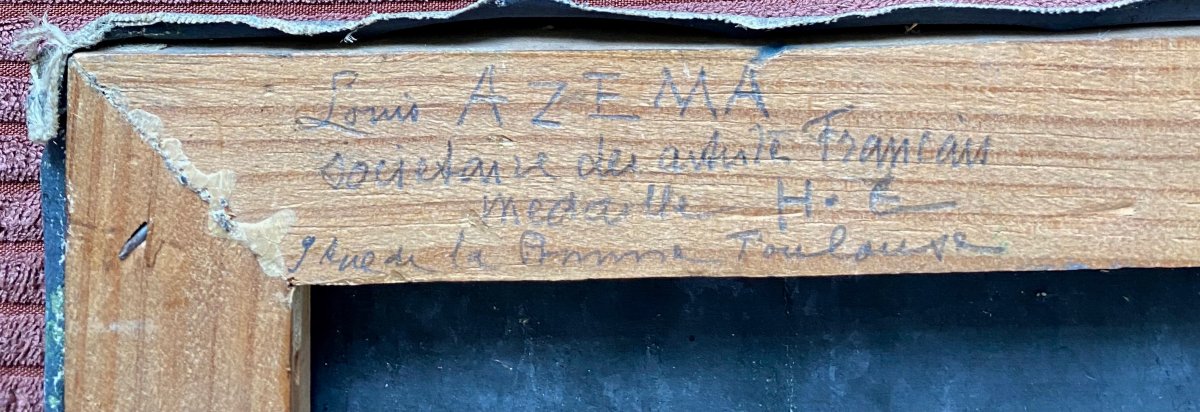 Louis AZEMA
societaire des artiste Français
medaille H. C
9 rue de la Toulouse